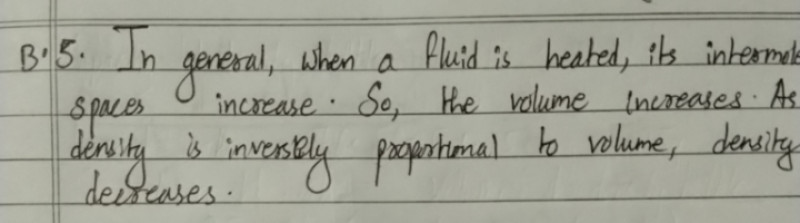 B. 5. In general, when a fluid is heated, its intermole
spaces increase. So, the volume increases. As
density is inversely proportional to volume, density
decreases.